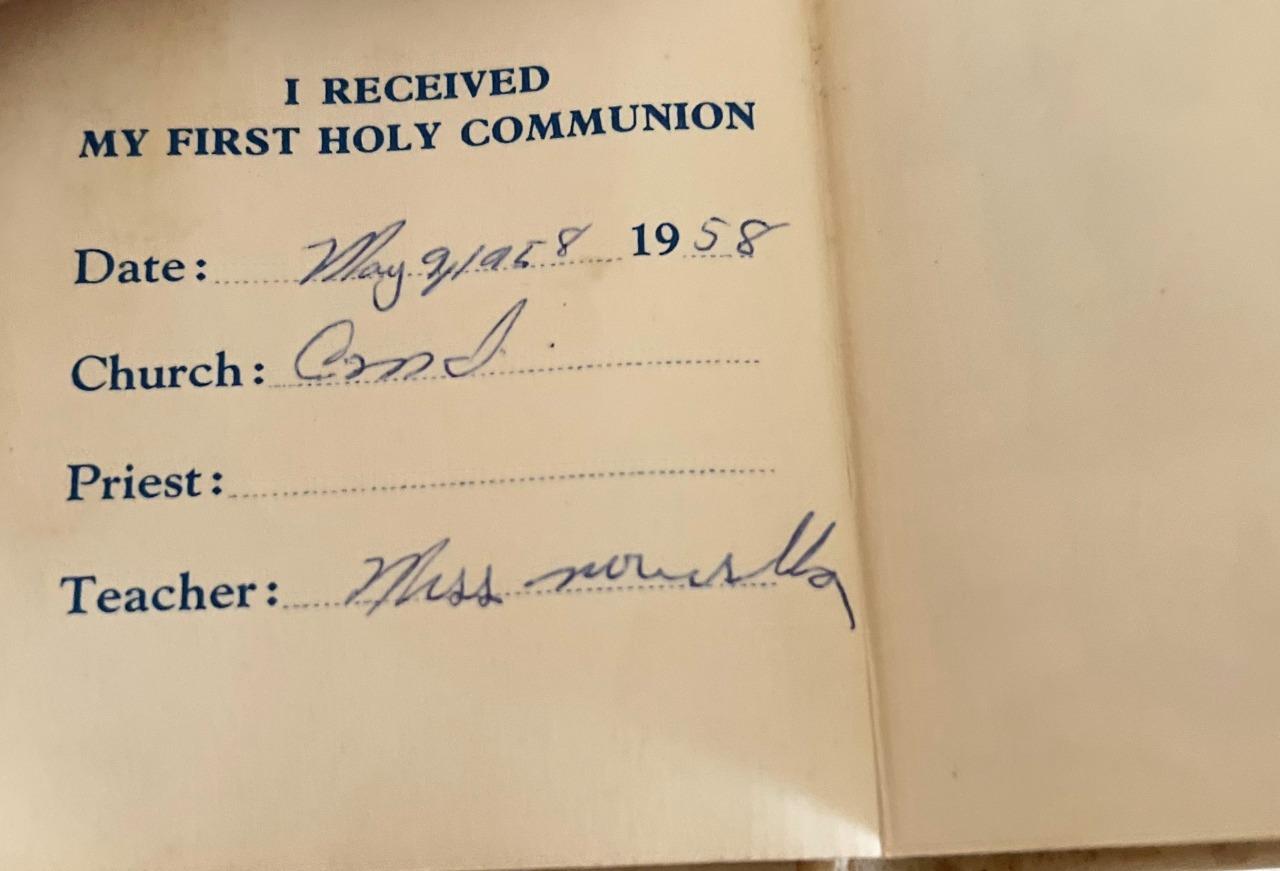 I RECEIVED
MY FIRST HOLY COMMUNION
Date: May 9, 1958 1958
Church:
Priest:
Teacher: Miss